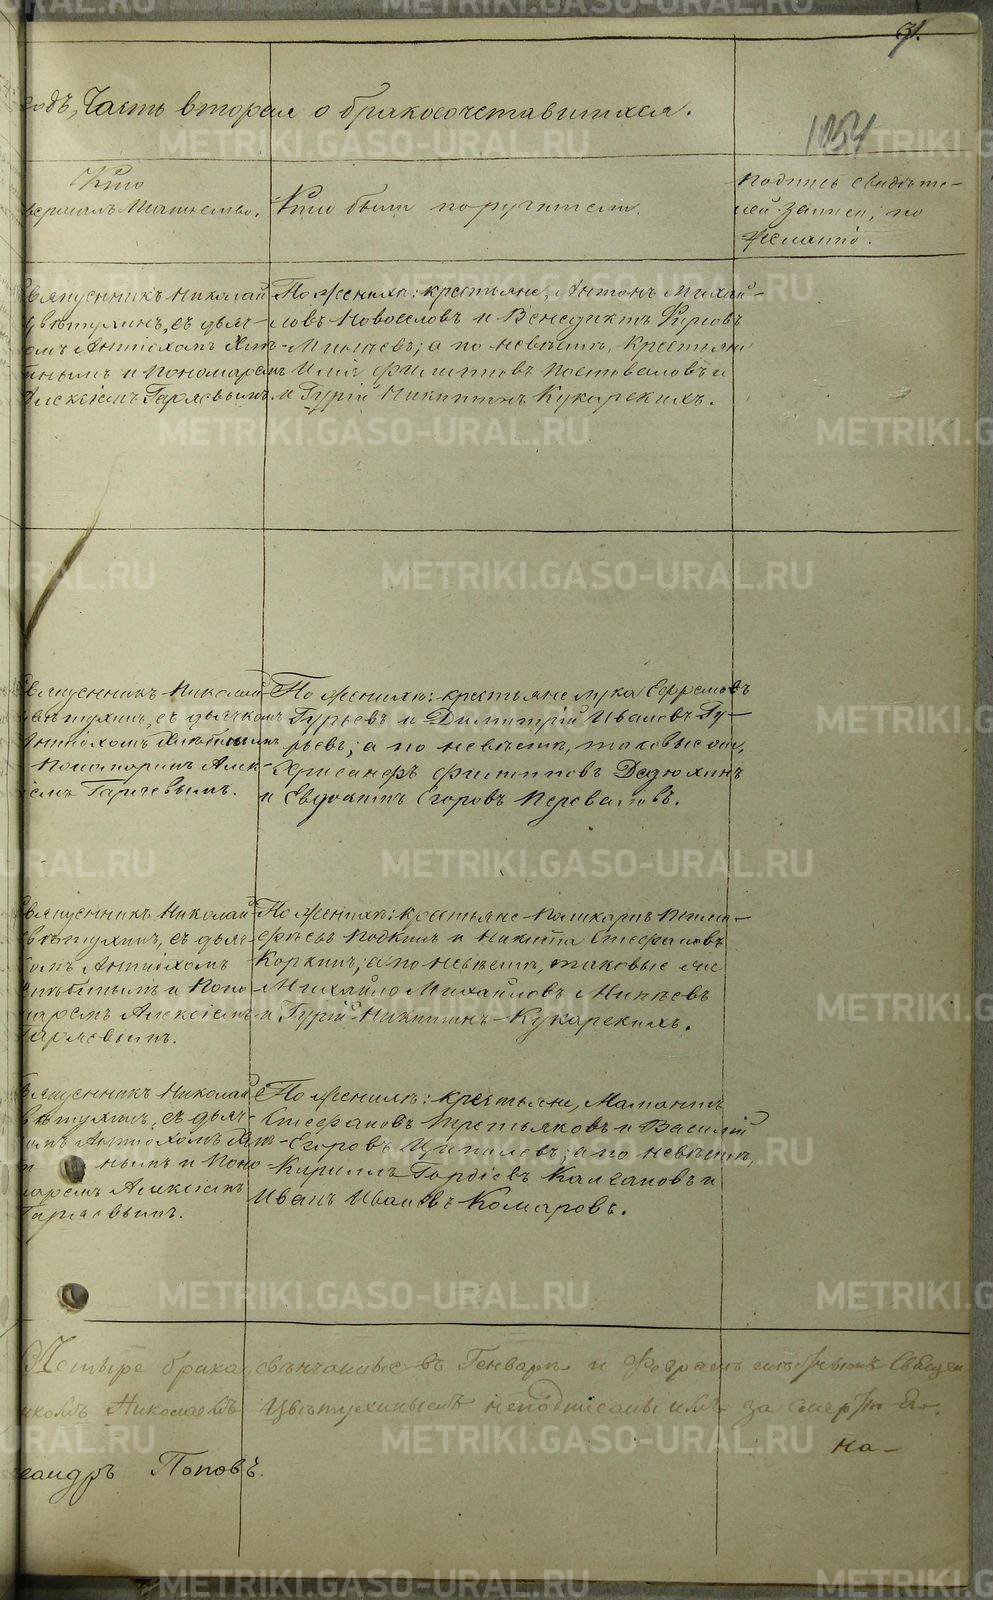 31.
годъ, Часть вторая о бракосочетавшихся.
1054
Кто
вершалъ таинство.
Кто были поручители.
Подпись свидѣте-
лей записи, по
желанію.
Священникъ Николай
Цвѣтухинъ, съ дьяч-
комъ Антіохомъ Хит-
инымъ и Пономаремъ
Алексіемъ Гаряевымъ.
По женихѣ: крестьяне, Антонъ Михай-
ловъ Новоселовъ и Венедиктъ Фирсовъ
Минѣевъ; а по невѣстѣ, крестьяне
Илія Филипповъ Постоваловъ и
и Гурій Никитинъ Кукарскихъ.
Священникъ Николай
Цвѣтухинъ, съ дьячкомъ
Антіохомъ
Пономаремъ Алек-
сіемъ Гаряевымъ.
По женихѣ: крестьяне Лука Ефремовъ
Гурьевъ и Димитрій Ивановъ Гу-
рьевъ; а по невѣстѣ, таковые же,
Хрисанфъ Филипповъ Дедюхинъ
и Евдокимъ Егоровъ Переваловъ.
Священникъ Николай
Цвѣтухинъ, съ дьяч-
комъ Антіохомъ
и Поно-
маремъ Алексіемъ
Гаряевымъ.
По женихѣ: крестьяне
и Никита Стефановъ
Коркинъ; а по невѣстѣ, таковые же
Михайло Михайловъ Минѣевъ
и Гурій Никитинъ Кукарскихъ.
Священникъ Николай
Цвѣтухинъ, съ дьяч-
комъ Антіохомъ Хит-
нымъ и Поно-
маремъ Алексіемъ
Гаряевымъ.
По женихѣ: крестьяне, Мамонтъ
Стефановъ Третьяковъ и Василій
Егоровъ Ципилевъ; а по невѣстѣ,
Кириллъ Гордѣевъ Калгановъ и
Иванъ Ивановъ Комаровъ.
Четыре брака, свѣнчанные въ Генварѣ и Февралѣ
Николаемъ Цвѣтухинымъ неподписаны имъ за смертію его.
На-
сандръ Поповъ.
METRIKI.GASO-URAL.RU